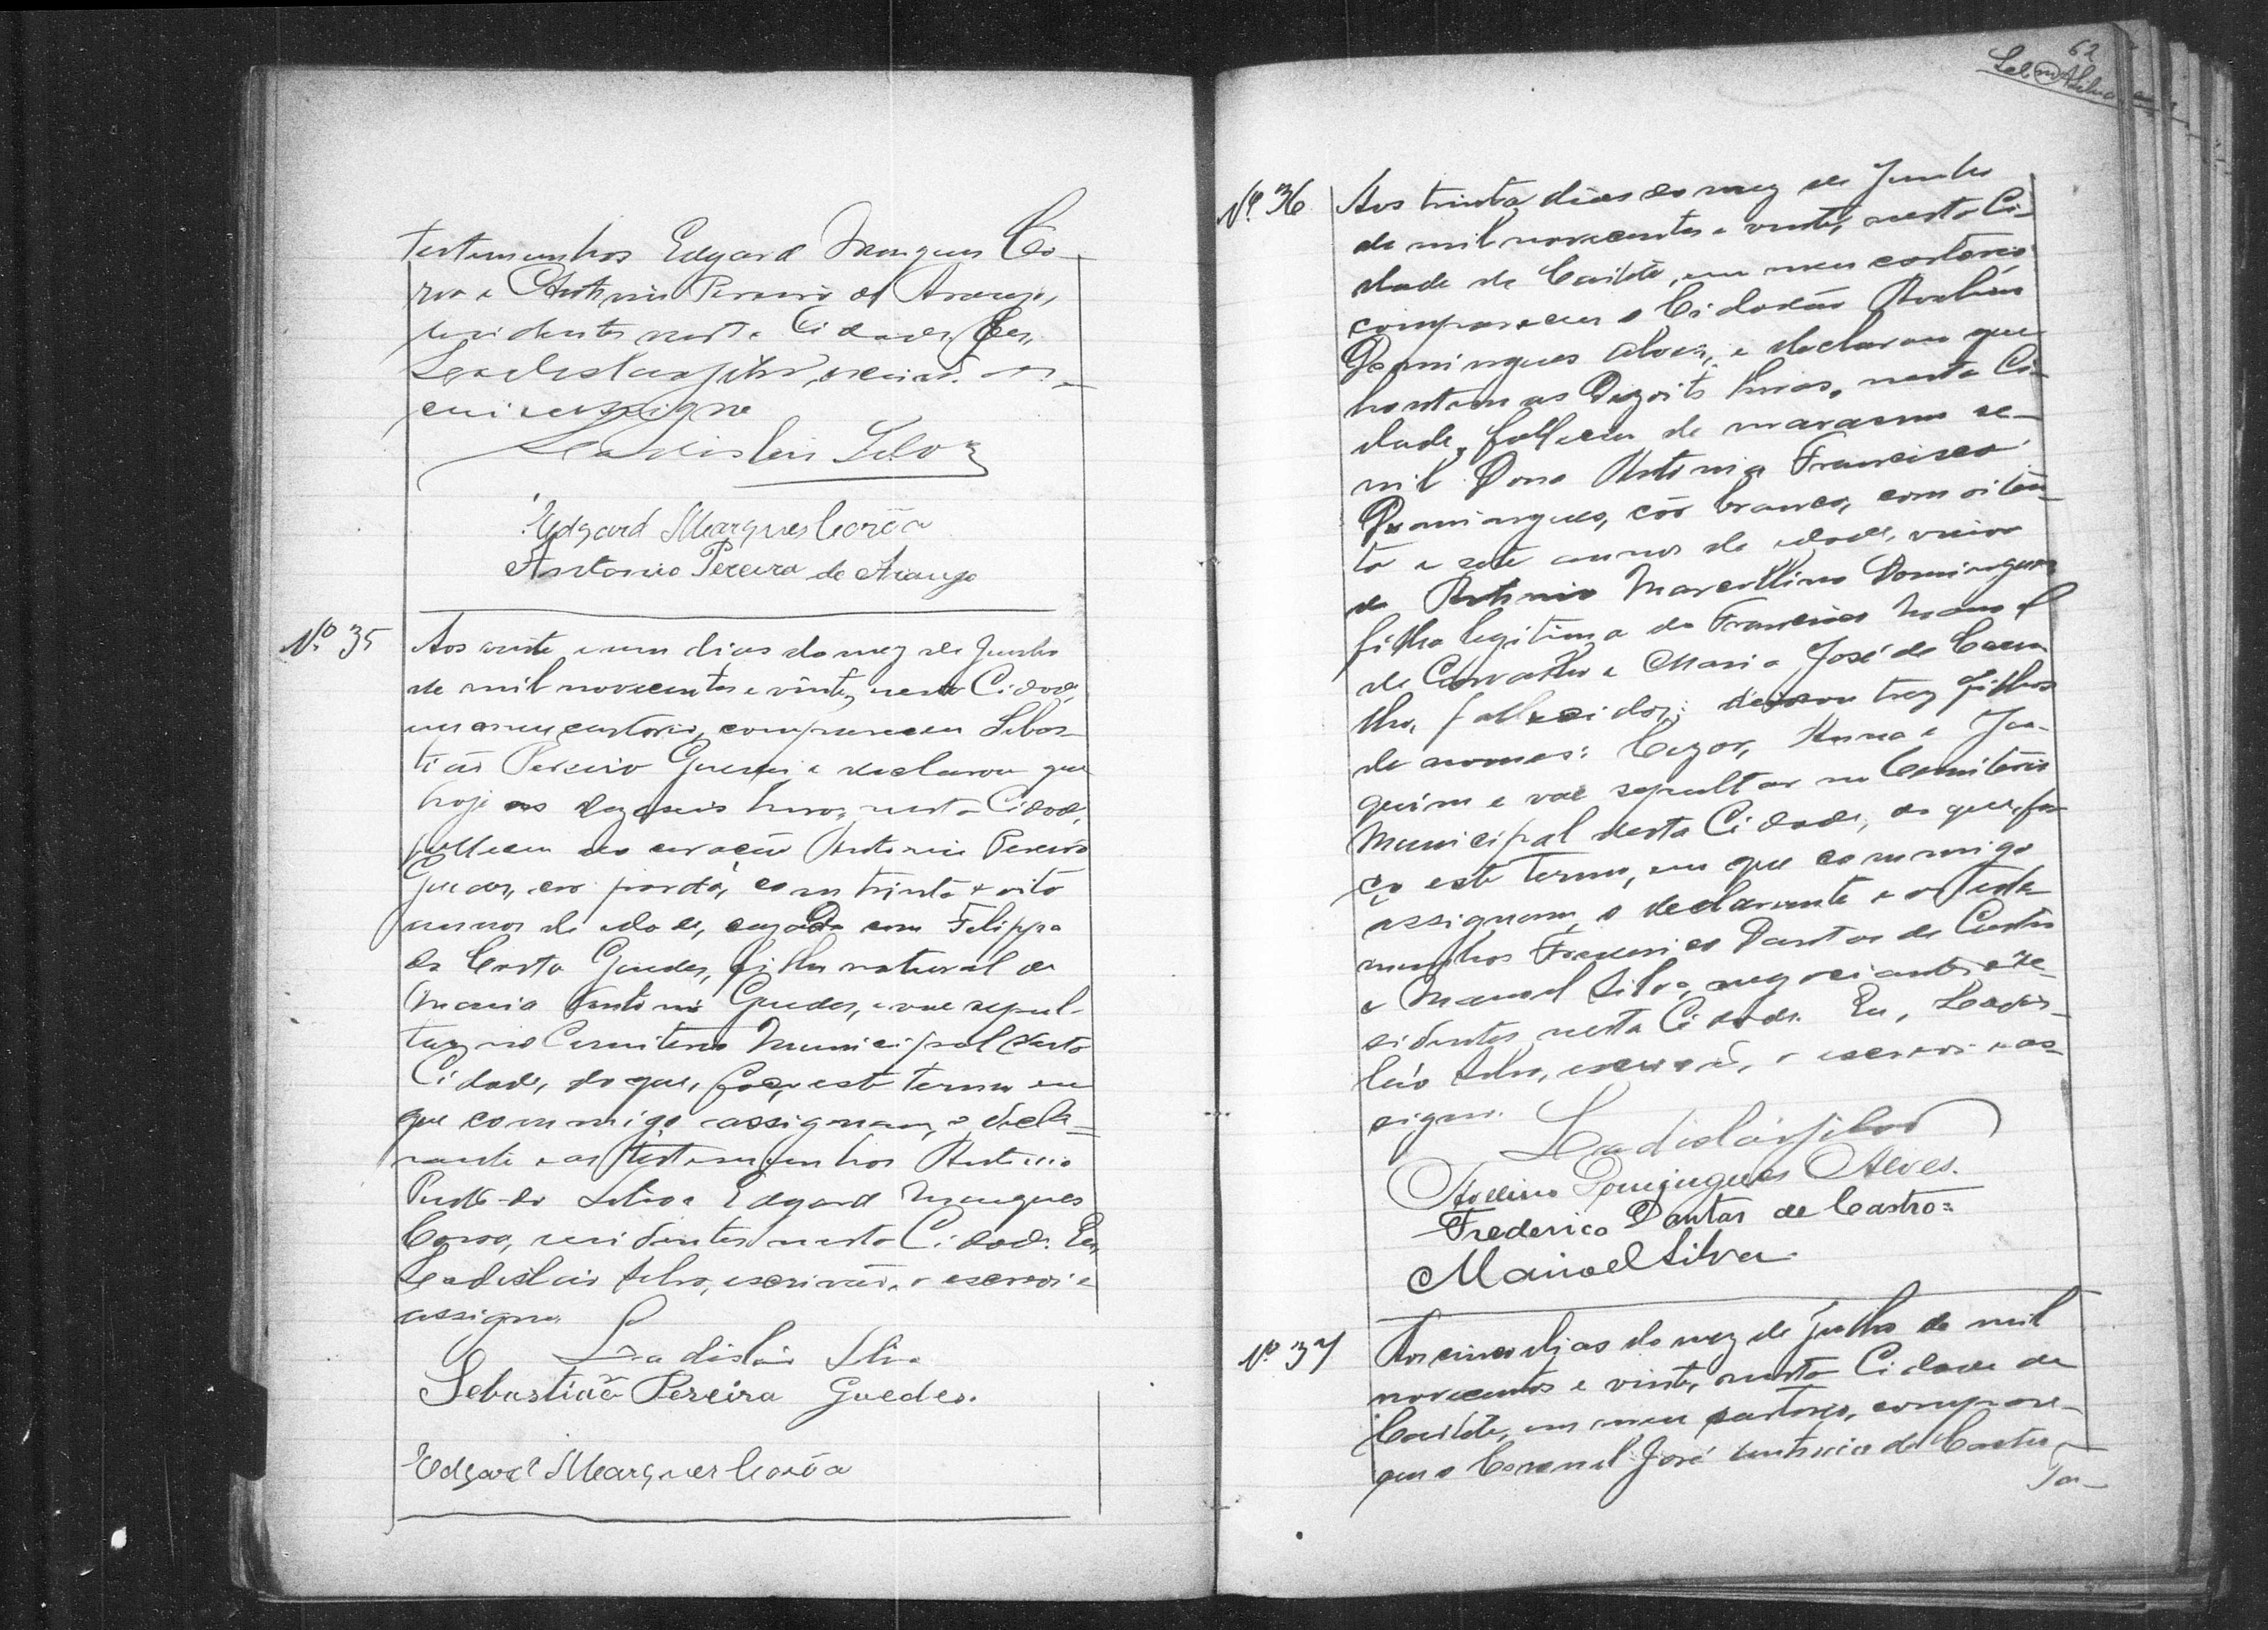 testemunhas Edgard Marques Co-
rôa e Antonio Pereira de Araujo,
residentes nesta Cidade. Eu,
Leadislau Silva, escrivão, o es-
crevi e assigno
Leadislau Silva
Edgard Marques Corôa
Antonio Pereira de Araujo
Nº 35
Aos vinte e um dias do mez de Junho
de mil novecentos e vinte, nesta Cidade,
em meu cartorio, compareceu Sebas-
tião Pereira Guedes e declarou que
hoje as dezeseis horas, nesta Cidade,
falleceu do coração Antonio Pereira
Guedes, cor parda, com trinta e oito
annos de edade, cazado com Felippa
da Costa Guedes, filho natural de
Maria Antonia Guedes, e vae sepul-
tar no Cemiterio Municipal desta
Cidade, do que, faço este termo em
que commigo assignam, o decla-
rante e as testemunhas Antonio
da Silva e Edgard Marques
Coroa, residentes nesta Cidade. Eu,
Leadislau Silva, escrivão, o escrevi e
assigno.
Leadislau Silva
Sebastião Pereira Guedes.
Edgard Marques Corôa
62
Nº 36
Aos trinta dias do mez de Junho
de mil novecentos e vinte, nesta Ci-
dade de Caiteté, em meu cartorio
compareceu o Cidadão Avelino
Domingues Alves, e declarou que
hontem as Dezoito horas, nesta Ci-
dade, falleceu de marasmo se-
nil Dona Antonia Francisca
Domingues, côr branca, com oiten-
ta e sete annos de edade, viuva
de Antonio Marcellino Domingues
filha legitima de Francisco Manoel
de Carvalho e Maria José de Carva
lho, fallecidos; deixou trez filhos
de nomes: Cezar, Anna e Joa-
quim e vae sepultar no Cemiterio
Municipal desta Cidade, do que, fa-
ço este termo, em que commigo
assignam, o declarante e as teste-
munhas Frederico Dantas de Castro
e Manoel Silva, negociantes e re-
sidentes nesta Cidade. Eu, Leadis-
láo Silva, escrivão, o escrevi e as-
signo.
Leadisláo Silva
Avelino Domingues Alves.
Frederico Dantas de Castro=
Manoel Silva
Nº 37
Aos cinco dias do mez de Julho de mil
novecentos e vinte, nesta Cidade de
Caiteté, em meu cartorio, compare-
ceu o Coronel José Antonio de Castro